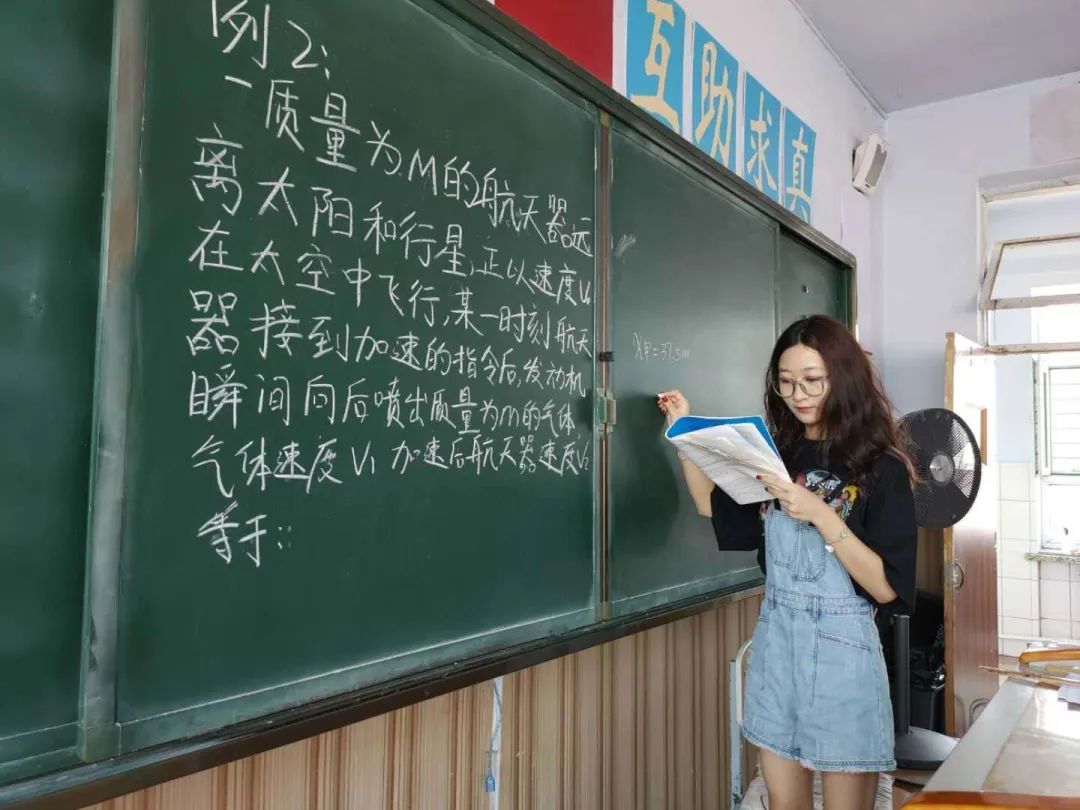 例2:
一质量为M的航天器远
离太阳和行星,正以速度V₀
在太空中飞行,某一时刻航天
器接到加速的指令后,发动机
瞬间向后喷出质量为m的气体
气体速度V₁加速后航天器速度V₂
等于:
X甲=37.5m
互助求真